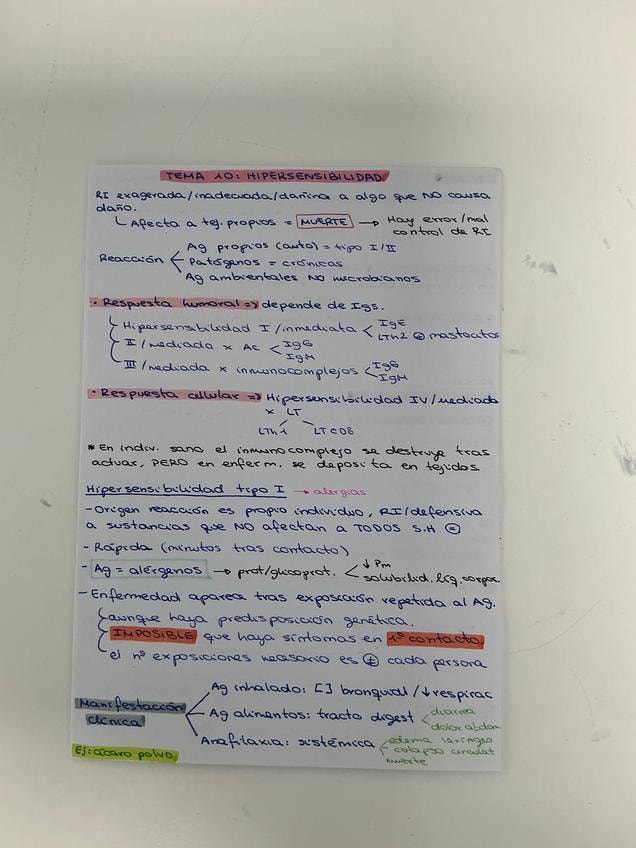 TEMA 10: HIPERSENSIBILIDAD
RI exagerada/inadecuada/dañina a algo que NO causa
daño.
↳ Afecta a tej. propios = MUERTE → Hay error/mal
control de RI
Reacción < Ag propios (auto) = tipo I/II
Patógenos = crónicas
Ag ambientales NO microbianos
• Respuesta humoral => depende de Igs.
Hipersensibilidad I/inmediata < IgE
LTh2 ⊕ mastocitos
II/mediada x Ac < IgG
IgM
III/mediada x inmunocomplejos < IgG
IgM
• Respuesta celular => Hipersensibilidad IV/mediada
x LT
LTh1 LTCD8
* En indiv. sano el inmunocomplejo se destruye tras
actuar, PERO en enferm. se deposita en tejidos
Hipersensibilidad tipo I → alergias
- Origen reacción es propio individuo, RI/defensiva
a sustancias que NO afectan a TODOS S.H
- Rápida (minutos tras contacto)
- Ag = alérgenos → prot/glicoprot. < ↓Pm
solubilid. líq. corpor.
- Enfermedad aparece tras exposición repetida al Ag.
aunque haya predisposición genética.
IMPOSIBLE que haya síntomas en 1º contacto.
el nº exposiciones necesario es ≠ cada persona
Manifestación
clínica
Ag inhalado: [] bronquial/↓respirac
Ag alimentos: tracto digest < diarrea
dolor abdom
Anafilaxia: sistémica < edema laríngeo
colapso circulat
muerte
Ej: ácaro polvo